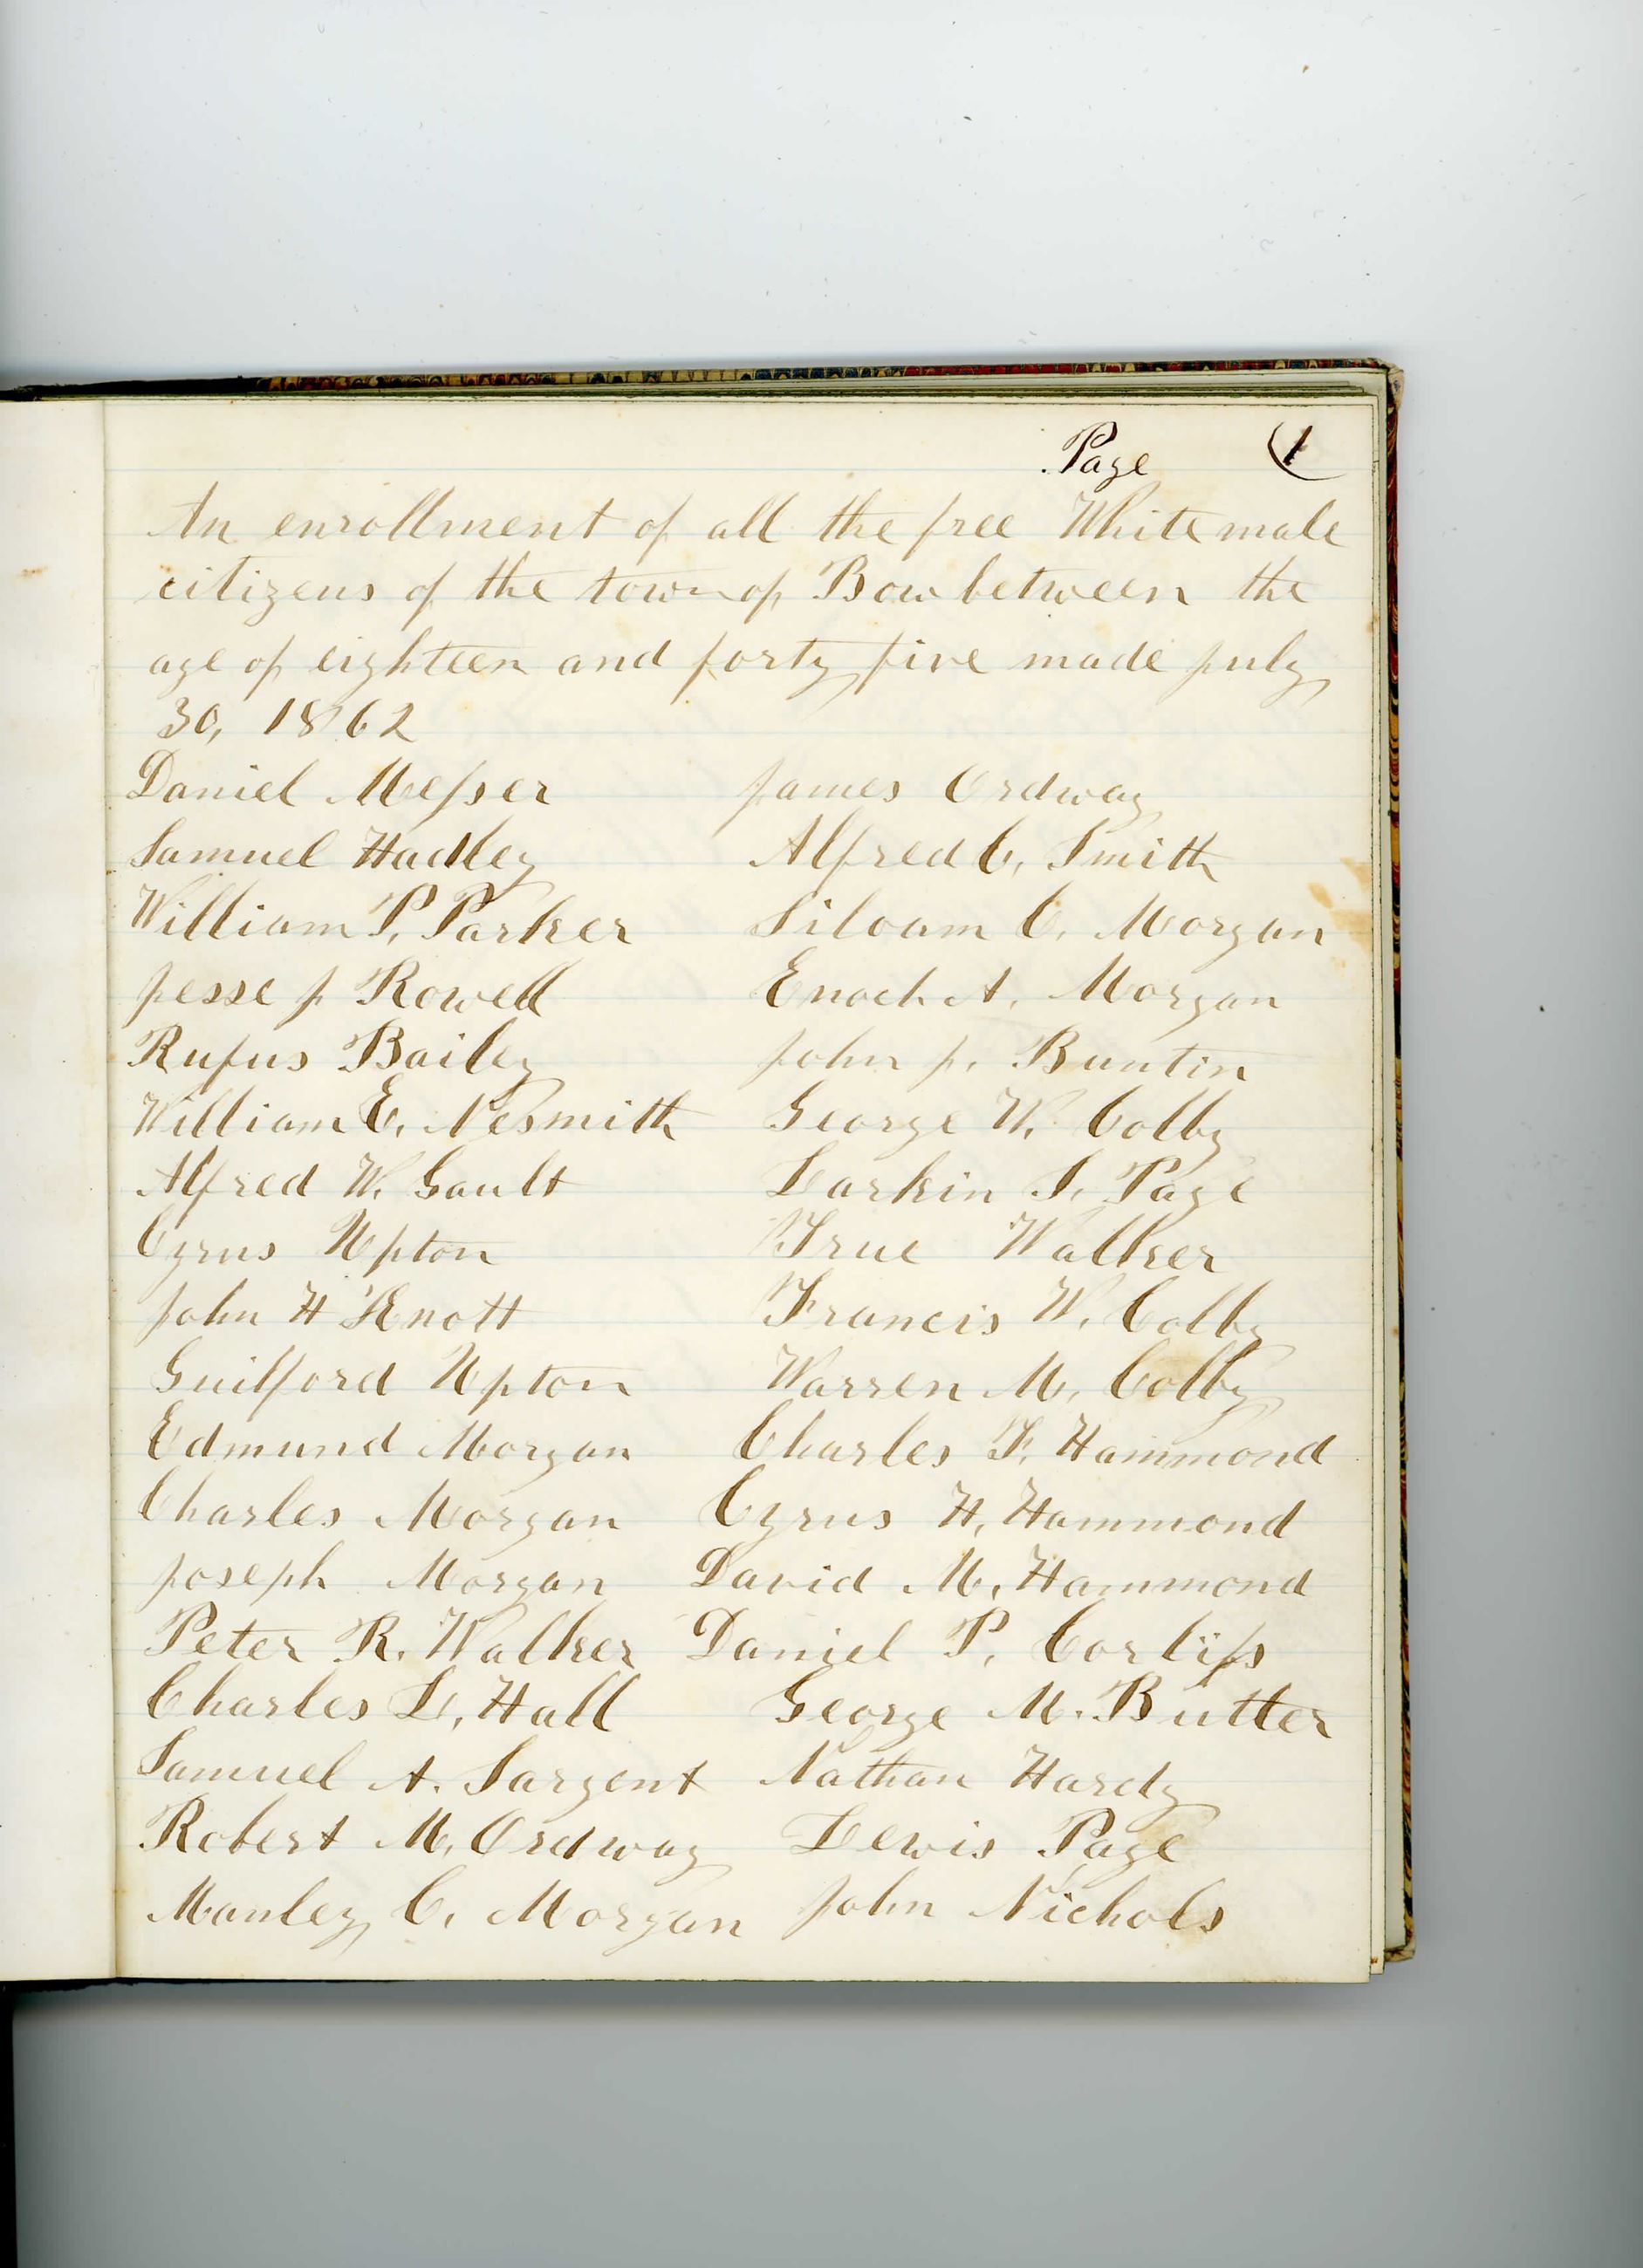 Page 1
An enrollment of all the free White male
citizens of the town of Bow between the
age of eighteen and forty five made july
30, 1862
Daniel Messer James Ordway
Samuel Hadley Alfred C. Smith
William P. Parker Siloam C. Morgan
Jesse J Rowell Enoch A. Morgan
Rufus Bailey John J. Buntin
William E. Nesmith George W. Colby
Alfred W. Gault Larkin S. Page
Cyrus Upton True Walker
John H Knott Francis W. Colby
Guilford Upton Warren M. Colby
Edmund Morgan Charles F. Hammond
Charles Morgan Cyrus H. Hammond
Joseph Morgan David M. Hammond
Peter R. Walker Daniel P. Corliss
Charles L. Hall George M. Butter
Samuel A. Sargent Nathan Hardy
Robert M. Ordway Lewis Page
Manley C. Morgan John Nichols